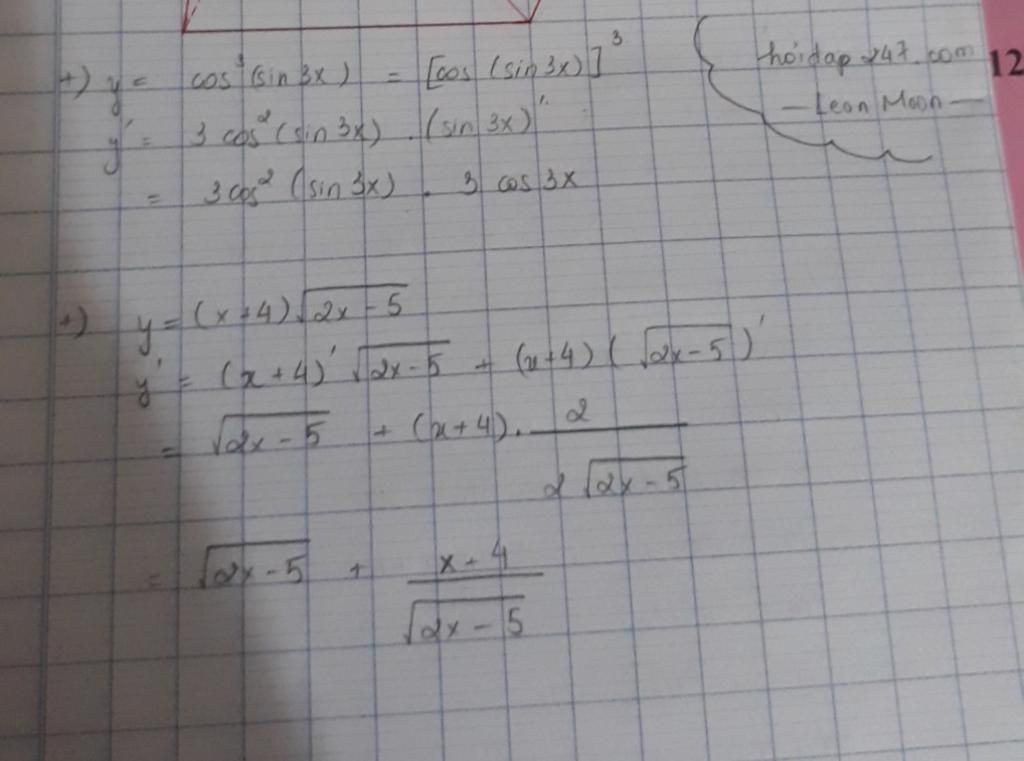 +) y = cos³(sin 3x) = [cos (sin 3x)]³
y' = 3 cos² (sin 3x) . (sin 3x)'
= 3 cos² (sin 3x) . 3 cos 3x
hoidap 247. com
— Leon Moon —
12
+) y = (x+4)√(2x-5)
y' = (x+4)' √(2x-5) + (x+4) (√(2x-5))'
= √(2x-5) + (x+4) . 2/(2√(2x-5))
= √(2x-5) + (x+4)/√(2x-5)